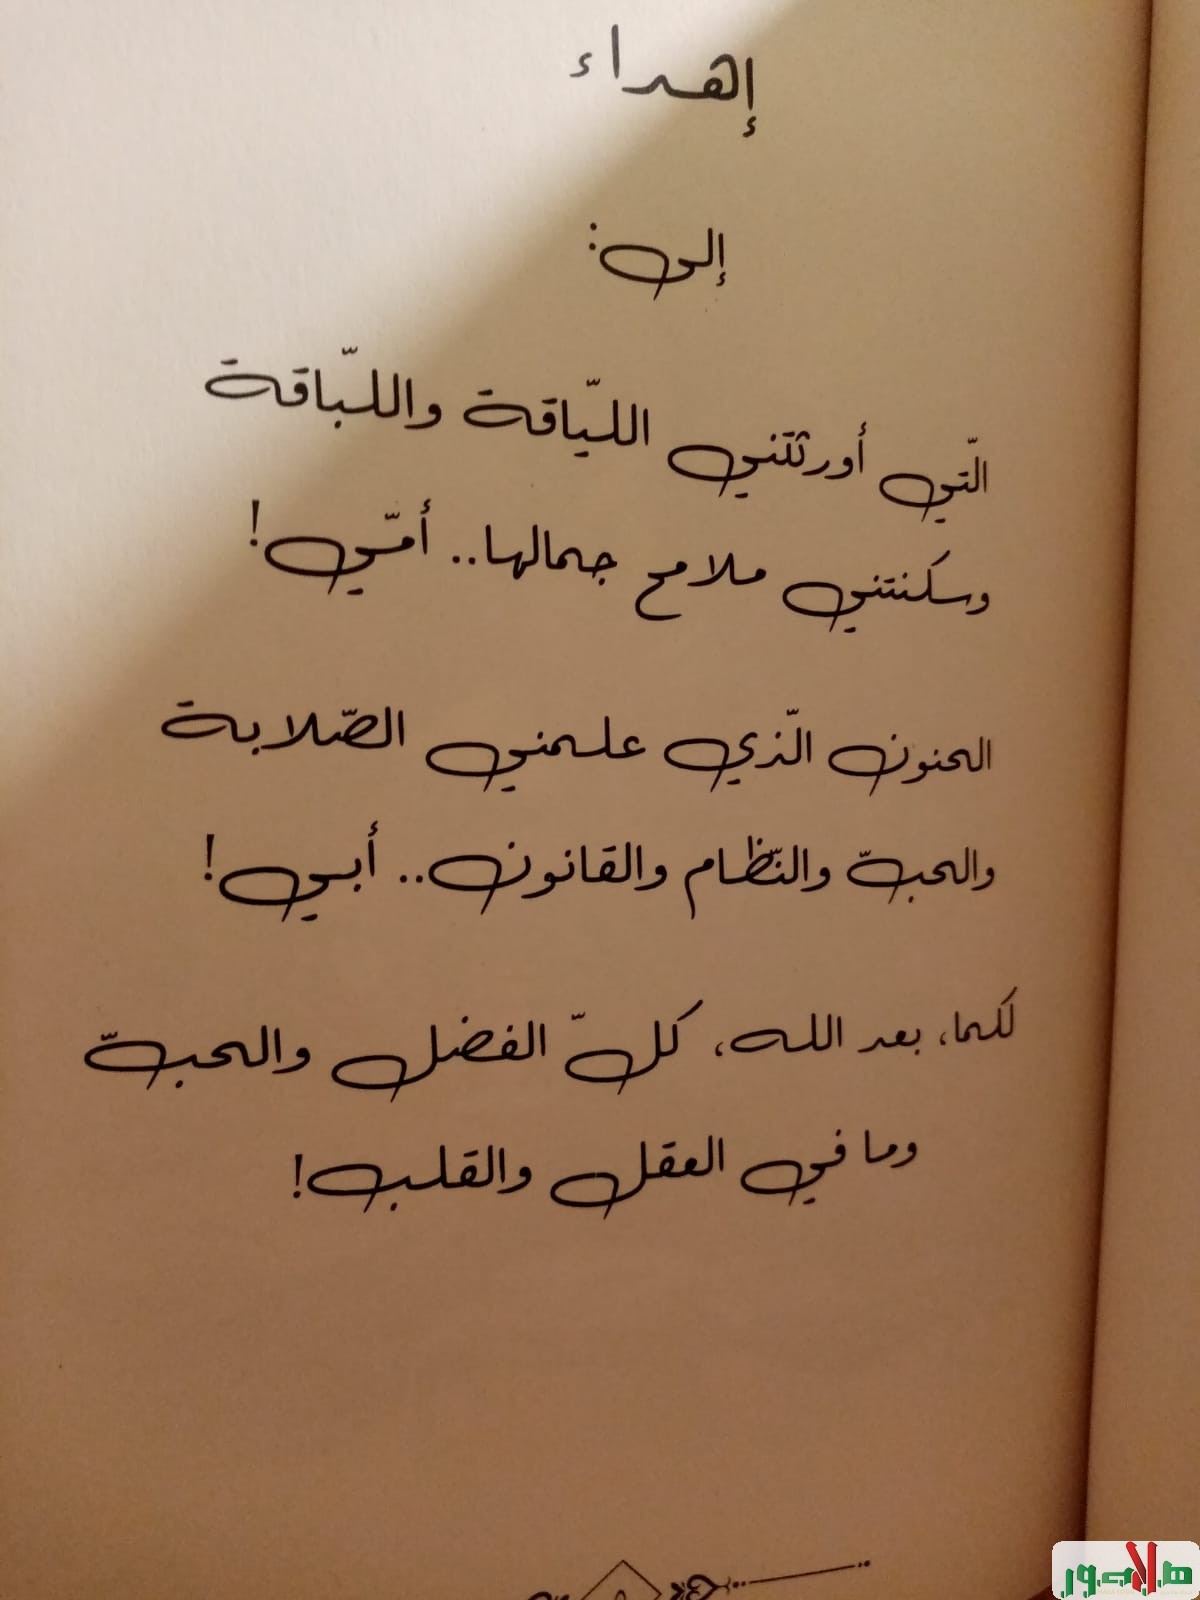 إهداء
إلى:
الّتي أورثتني اللّياقة واللّباقة
وسكنتني ملامح جمالها.. أمّي!
الحنون الّذي علمني الصّلابة
والحبّ والنّظام والقانون.. أبي!
لكما، بعد الله، كلّ الفضل والحبّ
وما في العقل والقلب!
٥
هلا صور